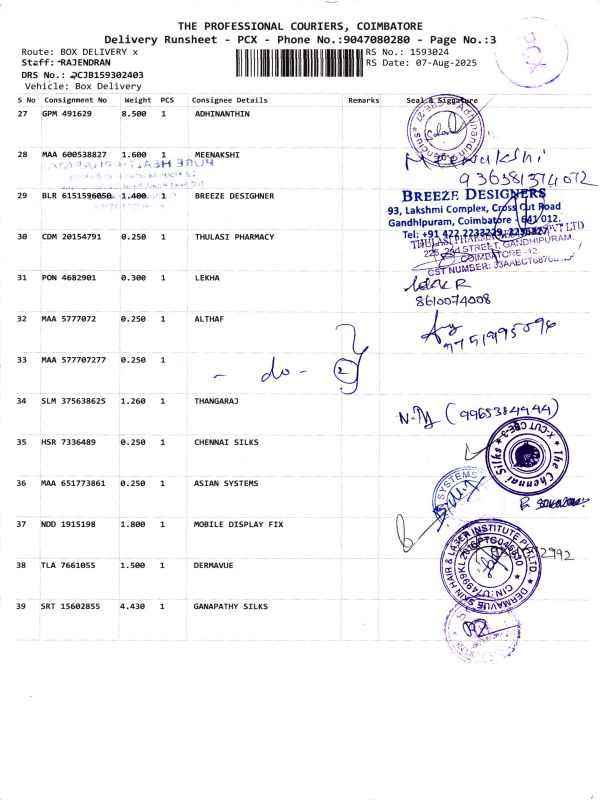 THE PROFESSIONAL COURIERS, COIMBATORE
Delivery Runsheet - PCX - Phone No.:9047080280 - Page No.:3
Route: BOX DELIVERY x RS No.: 1593024
Staff: RAJENDRAN RS Date: 07-Aug-2025
DRS No.: PCJB159302403
Vehicle: Box Delivery
S No Consignment No Weight PCS Consignee Details Remarks Seal & Signature
27 GPM 491629 8.500 1 ADHINANTHIN
28 MAA 600538827 1.600 1 MEENAKSHI
Meenakshi
936381374072
29 BLR 6151596050 1.400 1 BREEZE DESIGHNER
BREEZE DESIGNERS
93, Lakshmi Complex, Cross Cut Road
Gandhipuram, Coimbatore - 641 012.
Tel: +91 422 2233229, 2236827
30 CDM 20154791 0.250 1 THULASI PHARMACY
THULASI PHARMACIES PVT LTD
STREET, GANDHIPURAM,
COIMBATORE -12.
GST NUMBER:
31 PON 4682901 0.300 1 LEKHA
8610074008
32 MAA 5777072 0.250 1 ALTHAF
9751995096
33 MAA 577707277 0.250 1
- do - 2
34 SLM 375638625 1.260 1 THANGARAJ
(9965384944)
35 HSR 7336489 0.250 1 CHENNAI SILKS
The Chennai Silks X-CUT CBE-3
36 MAA 651773861 0.250 1 ASIAN SYSTEMS
SYSTEMS
37 NDD 1915198 1.800 1 MOBILE DISPLAY FIX
38 TLA 7661055 1.500 1 DERMAVUE
DERMAVUE SKIN HAIR & LASER INSTITUTE PVT. LTD.
39 SRT 15602855 4.430 1 GANAPATHY SILKS